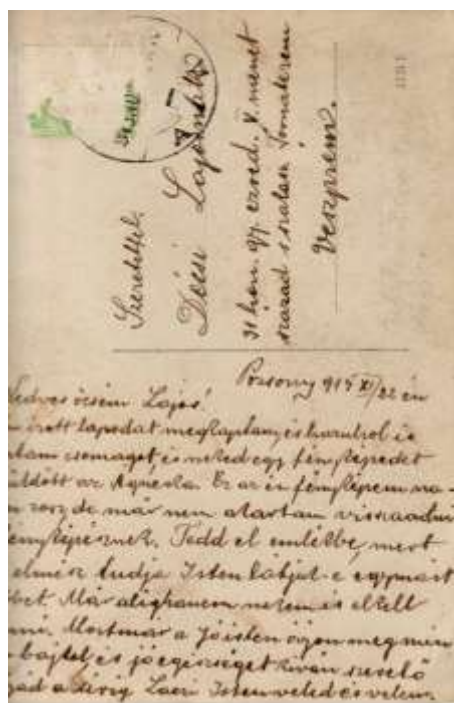 Szeretettel
Décsi Lajosnak
31 hon. gy. ezred. X. menet
század iskolai Tornaterem
Veszprém.
Pozsony 915 XI/22 én
Kedves öcsém Lajos!
írott lapodat megkaptam, és hazulról is
csomagot, és neked egy fényképedet
az Ágneska. Ez az én fényképem
rosz, de már nem akartam visszaadni
fényképésznek. Tedd el emlékbe, mert
elmész tudja Isten látjuk-e egymást
Már alighanem nekem is el kell
Mostmár a jó isten ójon meg
bajtól és jó egésséget kiván szerető
a sírig Laci Isten veled és velem.